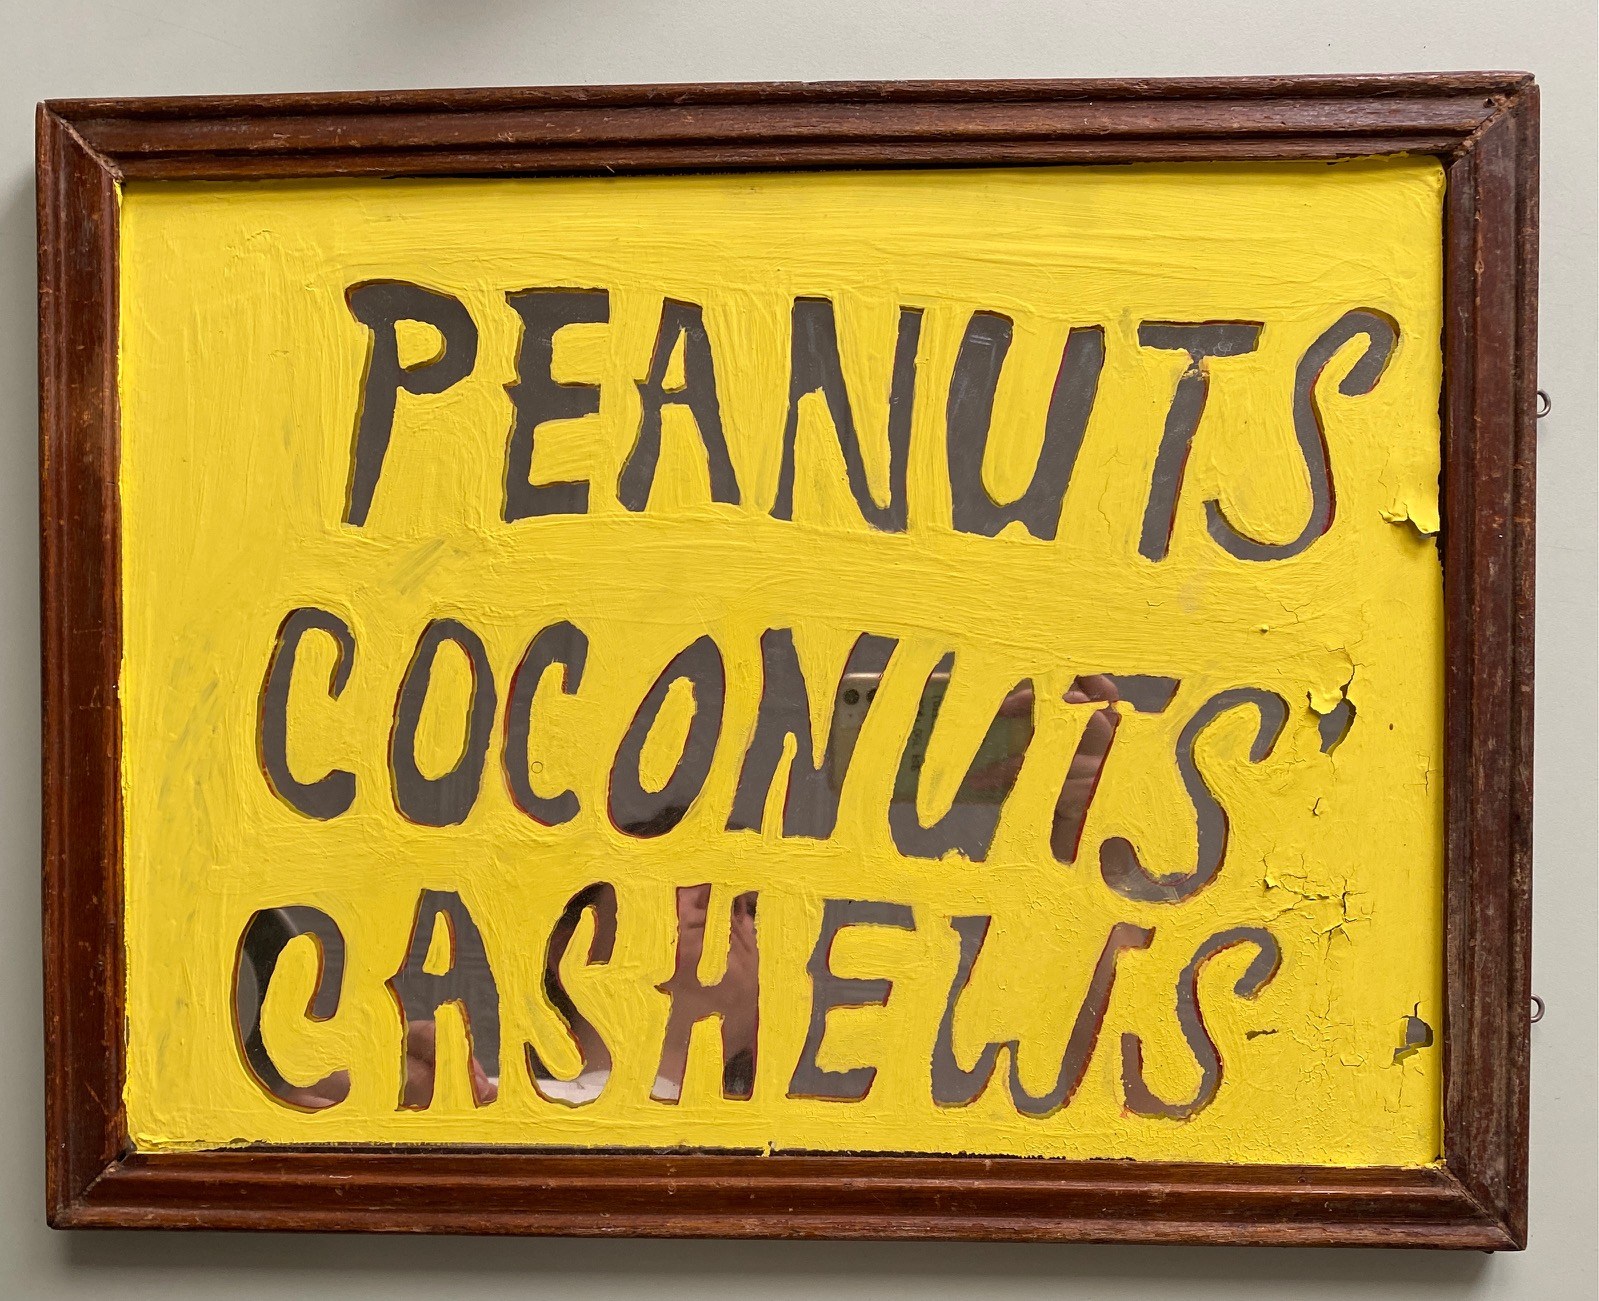 PEANUTS
COCONUTS
CASHEWS